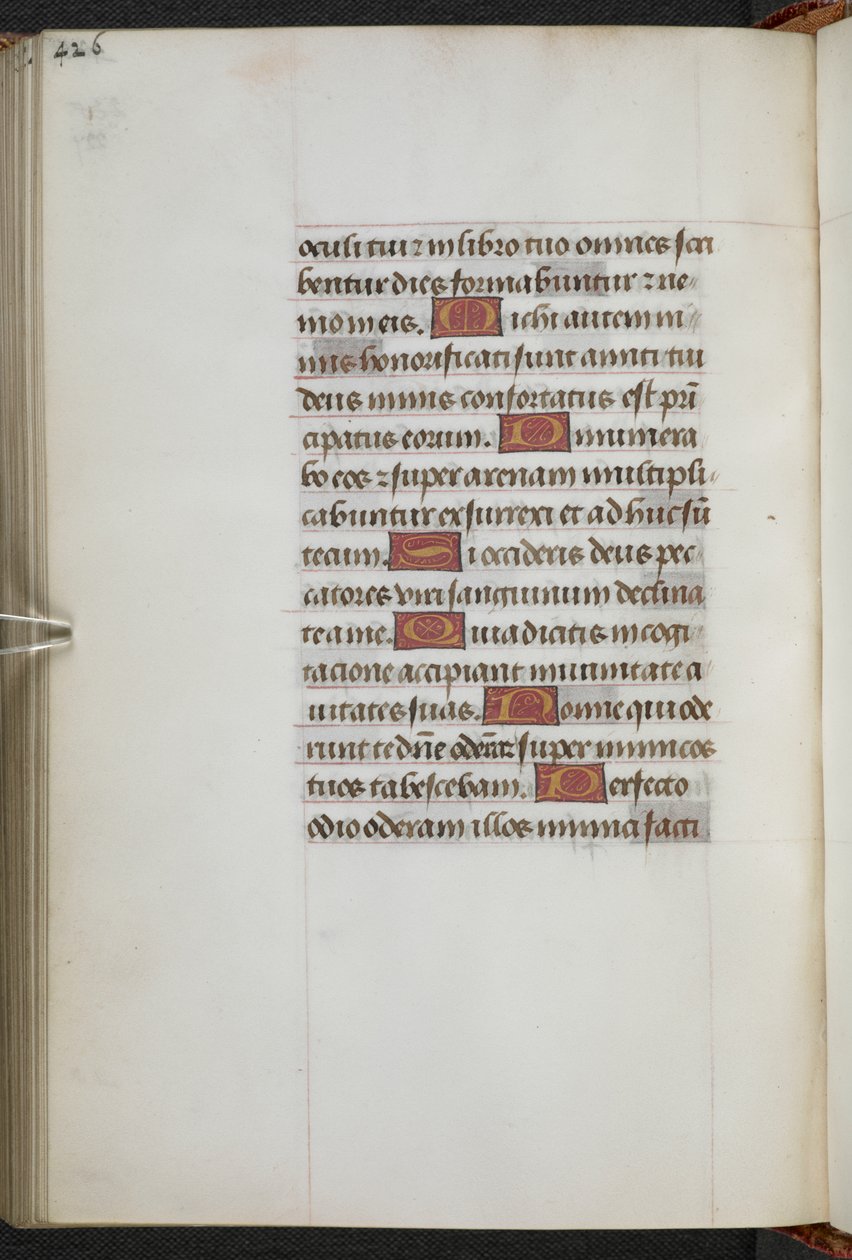 426
oculi tui ⁊ in libro tuo omnes scri
bentur dies formabuntur ⁊ ne
mo in eis. Michi autem ni
mis honorificati sunt amici tui
deus nimis confortatus est prī
cipatus eorum. Dinumera
bo eos ⁊ super arenam multipli
cabuntur exsurrexi et adhuc sū
tecum. Si occideris deus pec
catores viri sanguinum declina
te a me. Quia dicitis in cogi
tacione accipiant in vanitate ci
uitates suas. Nonne qui ode
runt te dn̄e oderā ⁊ super inimicos
tuos tabescebam. Perfecto
odio oderam illos inimici facti